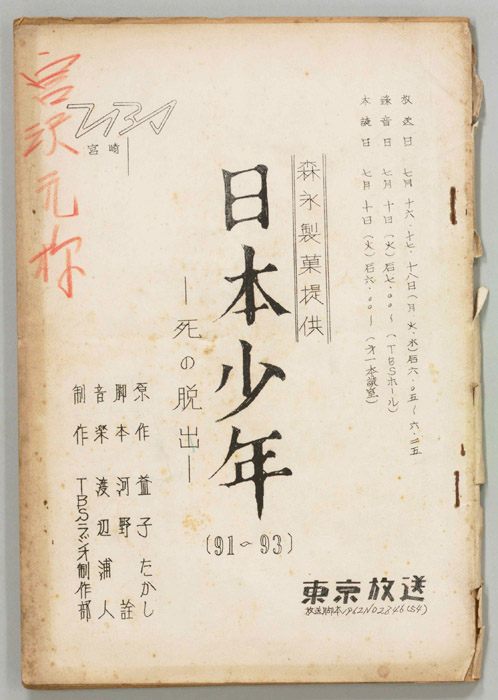 放送日 七月十六・十七・十八日(月、火、水)后六・〇五〜六・二五
録音日 七月十日(火)后七・〇〇〜(TBSホール)
本読日 七月十日(火)后六・〇〇〜(才一本読室)
森永製菓提供
日本少年
―死の脱出―
(91〜93)
原作 益子たかし
脚本 河野詮
音楽 渡辺浦人
制作 TBSラジオ制作部
宮崎
宮沢元
東京放送
放送脚本1962NO2846(S4)